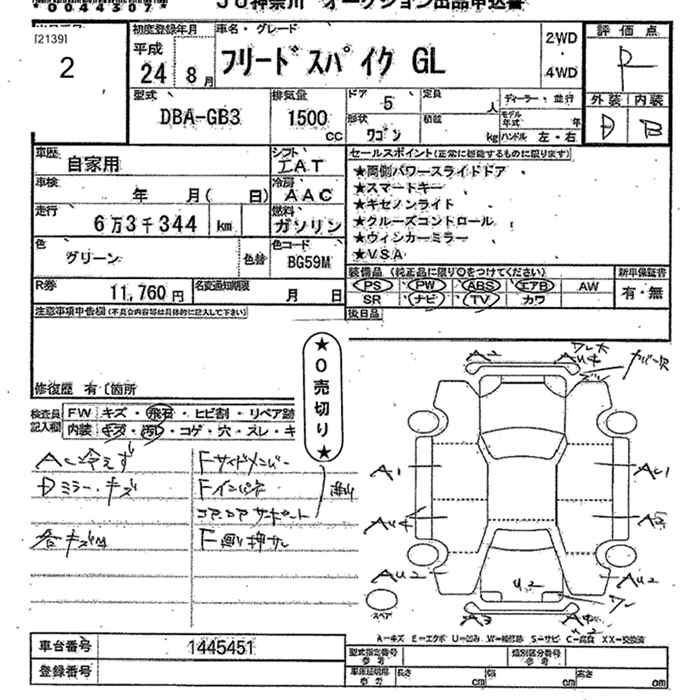 00443071
JU神奈川 オークション出品申込書
[2139]
2
初度登録年月
平成
24 8月
車名・グレード
フリードスパイク GL
2WD
・
4WD
評価点
R
型式
DBA-GB3
排気量
1500
cc
ドア 5
形状
ワゴン
定員
人
積載
kg
ディーラー・並行
モデル年式 年
ハンドル 左・右
外装 内装
D B
車歴
自家用
シフト
IAT
車検
年 月( 日)
冷房
AAC
走行
6万3千344 km
燃料
ガソリン
色
グリーン
色替
色コード
BG59M
R券
11,760円
名変通知期限
月 日
セールスポイント(正常に機能するものに限ります)
★両側パワースライドドア
★スマートキー
★キセノンライト
★クルーズコントロール
★ウィンカーミラー
★VSA
装備品 (純正品に限り○をつけてください)
新車保証書
PS PW ABS エアB AW
SR ナビ TV カワ
有・無
後日品
注意事項申告欄(不具合内容等は具体的に記入して下さい)
修復歴 有〔箇所
★0売切り★
検査員記入欄
FW キズ・飛石・ヒビ割・リペア跡
内装 キズ・汚レ・コゲ・穴・スレ・キ
AC冷えず
Dミラーキズ
各キズ凹
Fサイドメンバー
Fインパネ
コアコアサポート
F廻り押サレ
A2
AU4
A1
AU4
AU2
AU1
A3
AU2
U2
A3
ワレ
スペア
A=キズ E=エクボ U=凹み W=補修跡 S=サビ C=腐食 XX=交換済
車台番号
1445451
登録番号
型式指定番号
参考
類別区分番号
参考
車体延明細
参考
長さ cm
幅 cm
高さ cm